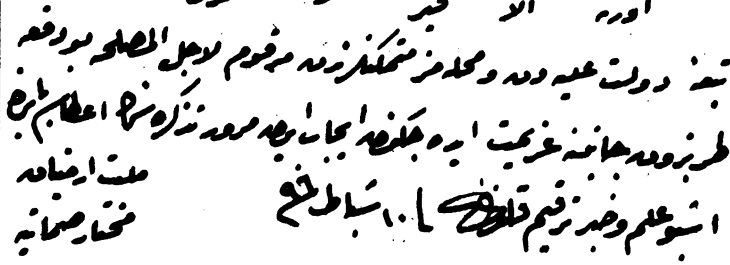 تبعهٔ دولت عليه دن و محله مز متمكنلرندن مرقوم لاجل المصلحه بو دفعه
طربزون جانبنه عزيمت ايده جكندن ايجاب ايدن مرور تذكره سنك اعطاسى بابنده
اشبو علم و خبر ترقيم قلندى ١٠ شباط
ملت ارمنيان
مختار صماتيه